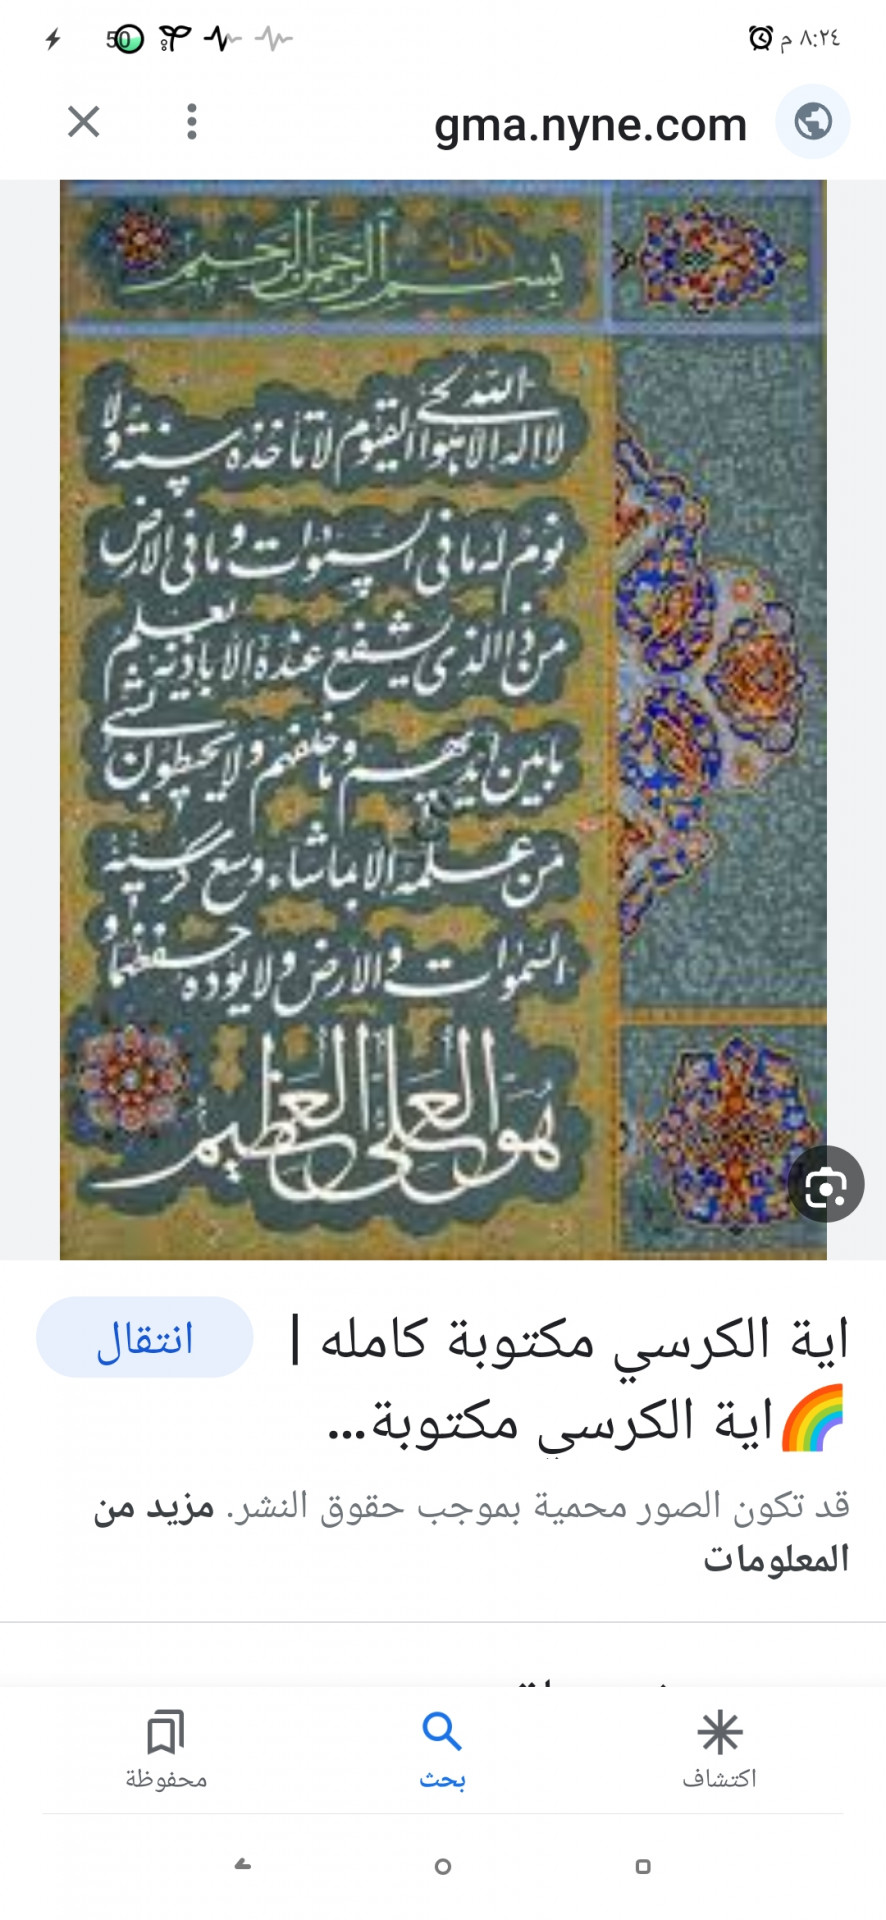 ٨:٢٤ م
50
gma.nyne.com
بسم الله الرحمن الرحيم
الله لا اله الا هو الحي القيوم لا تاخذه سنة ولا
نوم له ما في السموات وما في الارض
من ذا الذي يشفع عنده الا باذنه يعلم
ما بين ايديهم وما خلفهم ولا يحيطون بشيء
من علمه الا بما شاء وسع كرسيه
السموات والارض ولا يؤده حفظهما و
هو العلي العظيم
اية الكرسي مكتوبة كامله |
🌈اية الكرسي مكتوبة...
انتقال
قد تكون الصور محمية بموجب حقوق النشر. مزيد من
المعلومات
اكتشاف
بحث
محفوظة